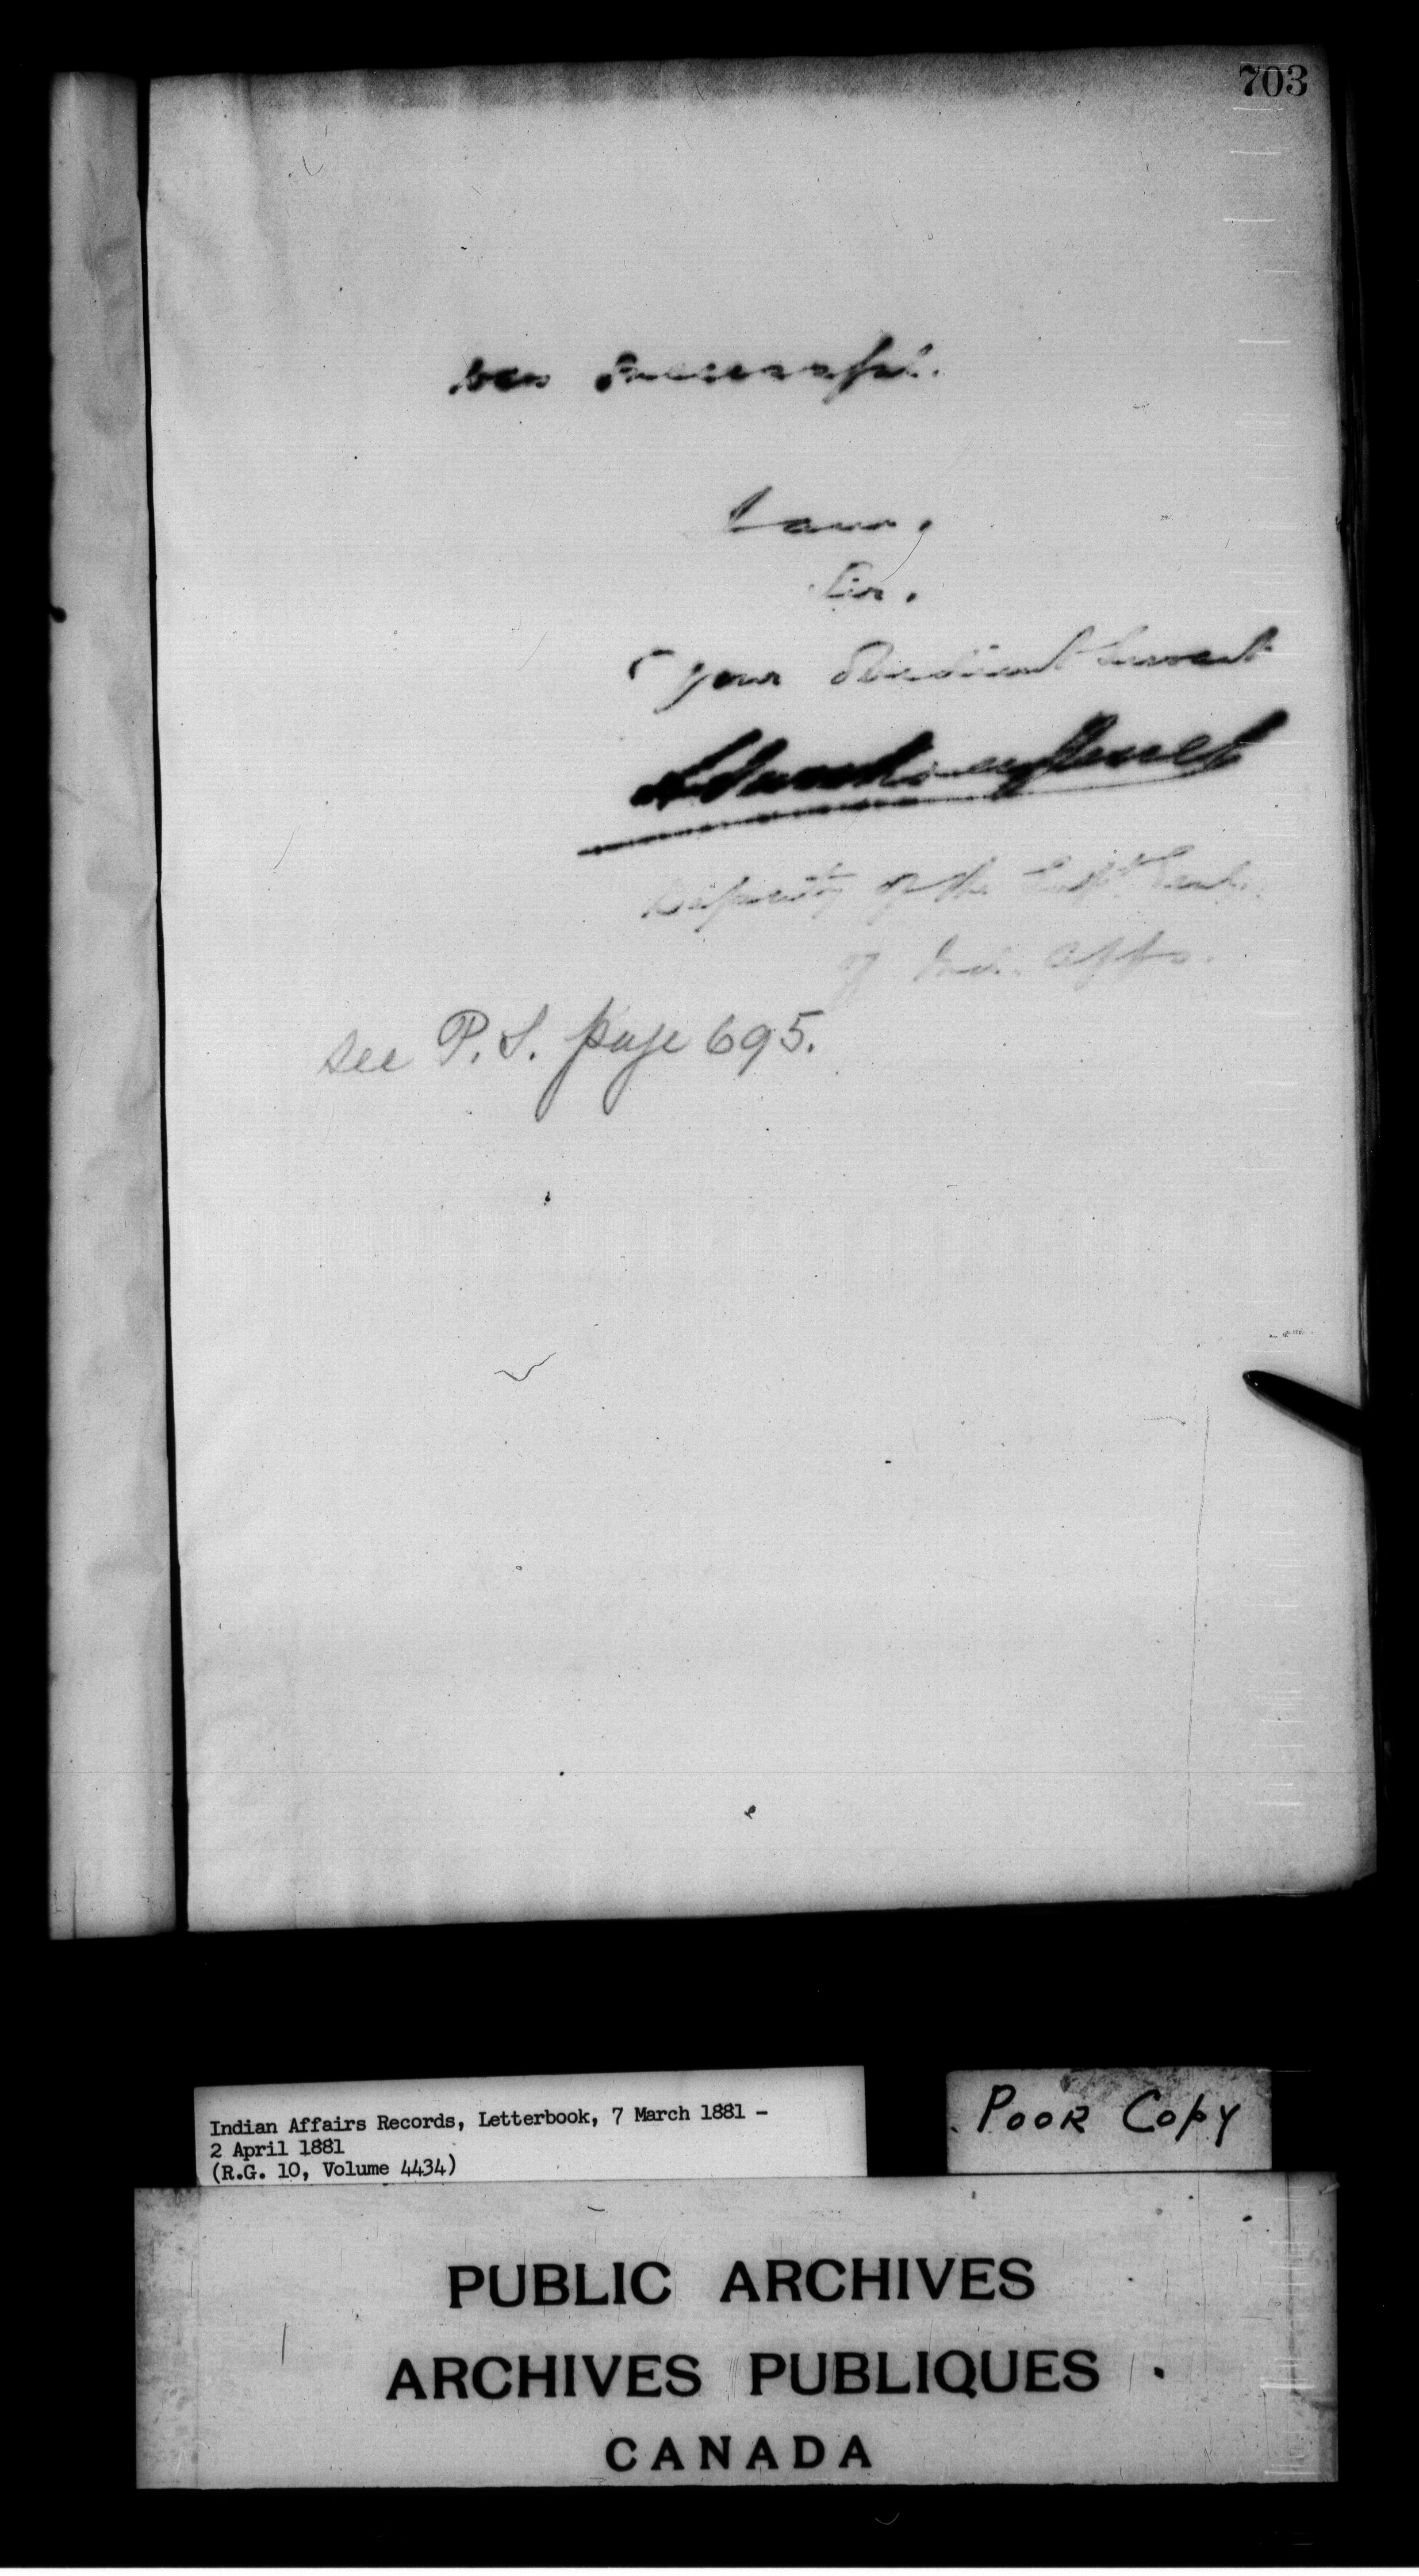 703
was successful.
I am,
Sir,
Your Obedient Servant
Deputy of the Supt. Genl.
of Ind. Affs.
see P.S. page 695.
Indian Affairs Records, Letterbook, 7 March 1881 -
2 April 1881
(R.G. 10, Volume 4434)
POOR COPY
PUBLIC ARCHIVES
ARCHIVES PUBLIQUES
CANADA